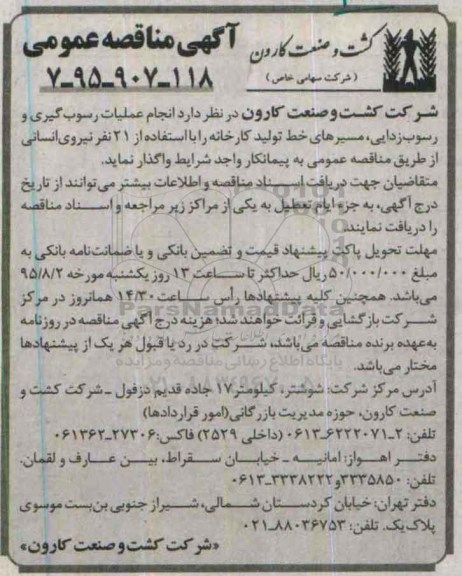 آگهی مناقصه عمومی
۷-۹۵-۹۰۷-۱۱۸
کشت و صنعت کارون
(شرکت سهامی خاص)
شرکت کشت و صنعت کارون در نظر دارد انجام عملیات رسوب گیری و
رسوب زدایی، مسیرهای خط تولید کارخانه را با استفاده از ۲۱ نفر نیروی انسانی
از طریق مناقصه عمومی به پیمانکار واجد شرایط واگذار نماید.
متقاضیان جهت دریافت اسناد مناقصه و اطلاعات بیشتر می توانند از تاریخ
درج آگهی، به جز ایام تعطیل به یکی از مراکز زیر مراجعه و اسناد مناقصه
را دریافت نمایند.
مهلت تحویل پاکت پیشنهاد قیمت و تضمین بانکی و یا ضمانت نامه بانکی به
مبلغ ۵۰/۰۰۰/۰۰۰ ریال حداکثر تا ساعت ۱۳ روز یکشنبه مورخه ۹۵/۸/۲
می باشد. همچنین کلیه پیشنهادها رأس ساعت ۱۴/۳۰ همانروز در مرکز
شرکت بازگشایی و قرائت خواهند شد؛ هزینه درج آگهی مناقصه در روزنامه
به عهده برنده مناقصه می باشد، شرکت در رد یا قبول هر یک از پیشنهادها
مختار می باشد.
آدرس مرکز شرکت: شوشتر، کیلومتر ۱۷ جاده قدیم دزفول - شرکت کشت و
صنعت کارون، حوزه مدیریت بازرگانی (امور قراردادها)
تلفن: ۲-۰۶۱۳-۶۲۲۲۰۷۱ (داخلی ۲۵۲۹) فاکس: ۲۷۳۰۶-۰۶۱۳۶۲
دفتر اهواز: امانیه - خیابان سقراط، بین عارف و لقمان.
تلفن: ۳۳۳۵۸۵۰ و ۳۳۳۸۲۲۲-۰۶۱۳
دفتر تهران: خیابان کردستان شمالی، شیراز جنوبی بن بست موسوی
پلاک یک. تلفن: ۸۸۰۳۶۷۵۳-۰۲۱
«شرکت کشت و صنعت کارون»
ParsNamadData
پایگاه اطلاع رسانی مناقصه و مزایده